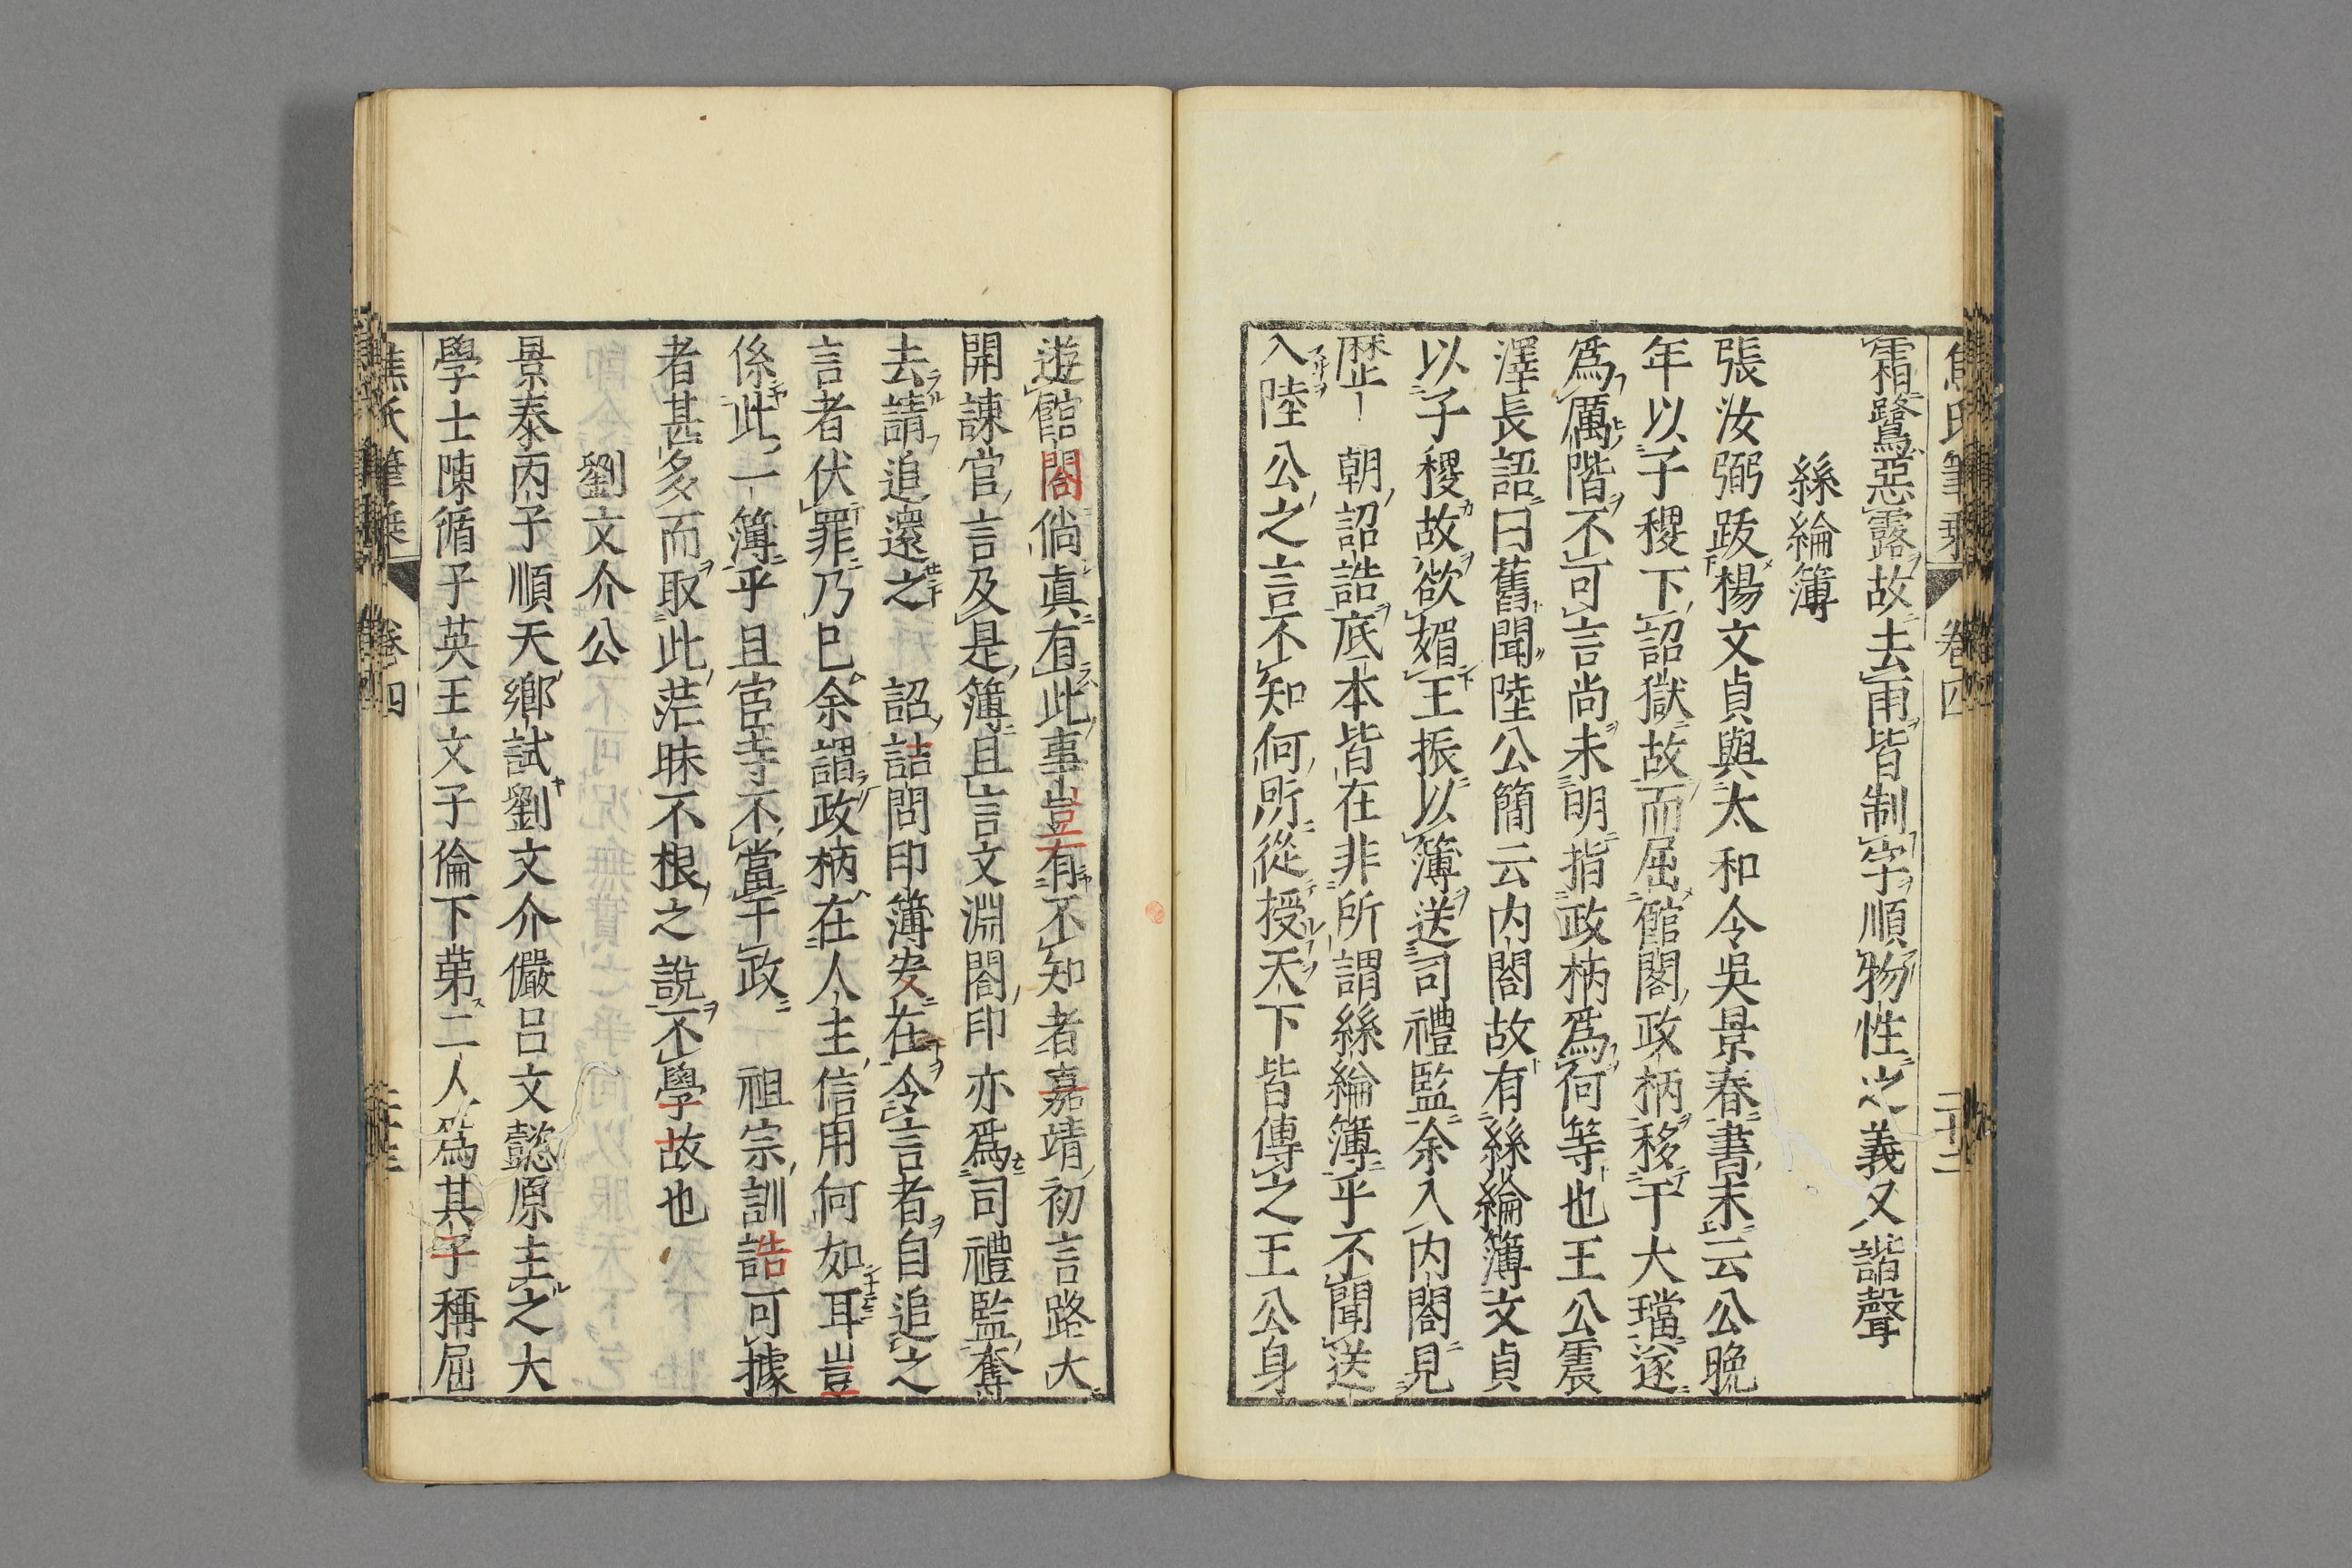 霜鷺惡露故去雨皆制字順物性之義又諧聲
絲綸簿
張汝弼跋楊文貞與太和令吳景春書末云公晚
年以子稷下詔獄故而屈館閣政柄移于大璫遂
爲厲階不可言尚未明指政柄爲何等也王公震
澤長語曰舊聞陸公簡云内閣故有絲綸簿文貞
以子稷故欲媚王振以簿送司禮監余入内閣見
歷朝詔誥底本皆在非所謂絲綸簿乎不聞送
入陸公之言不知何所從授天下皆傳之王公身
遊館閣倘真有此事豈有不知者嘉靖初言路大
開諫官言及是簿且言文淵閣印亦爲司禮監奪
去請追還之 詔詰問印簿安在令言者自追之
言者伏罪乃已余謂政柄在人主信用何如耳豈
係此一簿乎且宦寺不當干政 祖宗訓誥可據
者甚多而取此茫昧不根之說不學故也
劉文介公
景泰丙子順天鄉試劉文介儼呂文懿原主之大
學士陳循子英王文子倫下第二人爲其子稱屈
焦氏筆乘 卷四